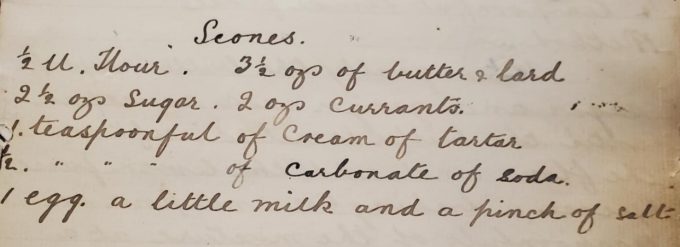 Scones.
½ lb. Flour. 3½ ozs of butter & lard
2½ ozs Sugar. 2 ozs Currants.
1. teaspoonful of Cream of tartar
½. " " " of Carbonate of soda.
1 egg. a little milk and a pinch of salt